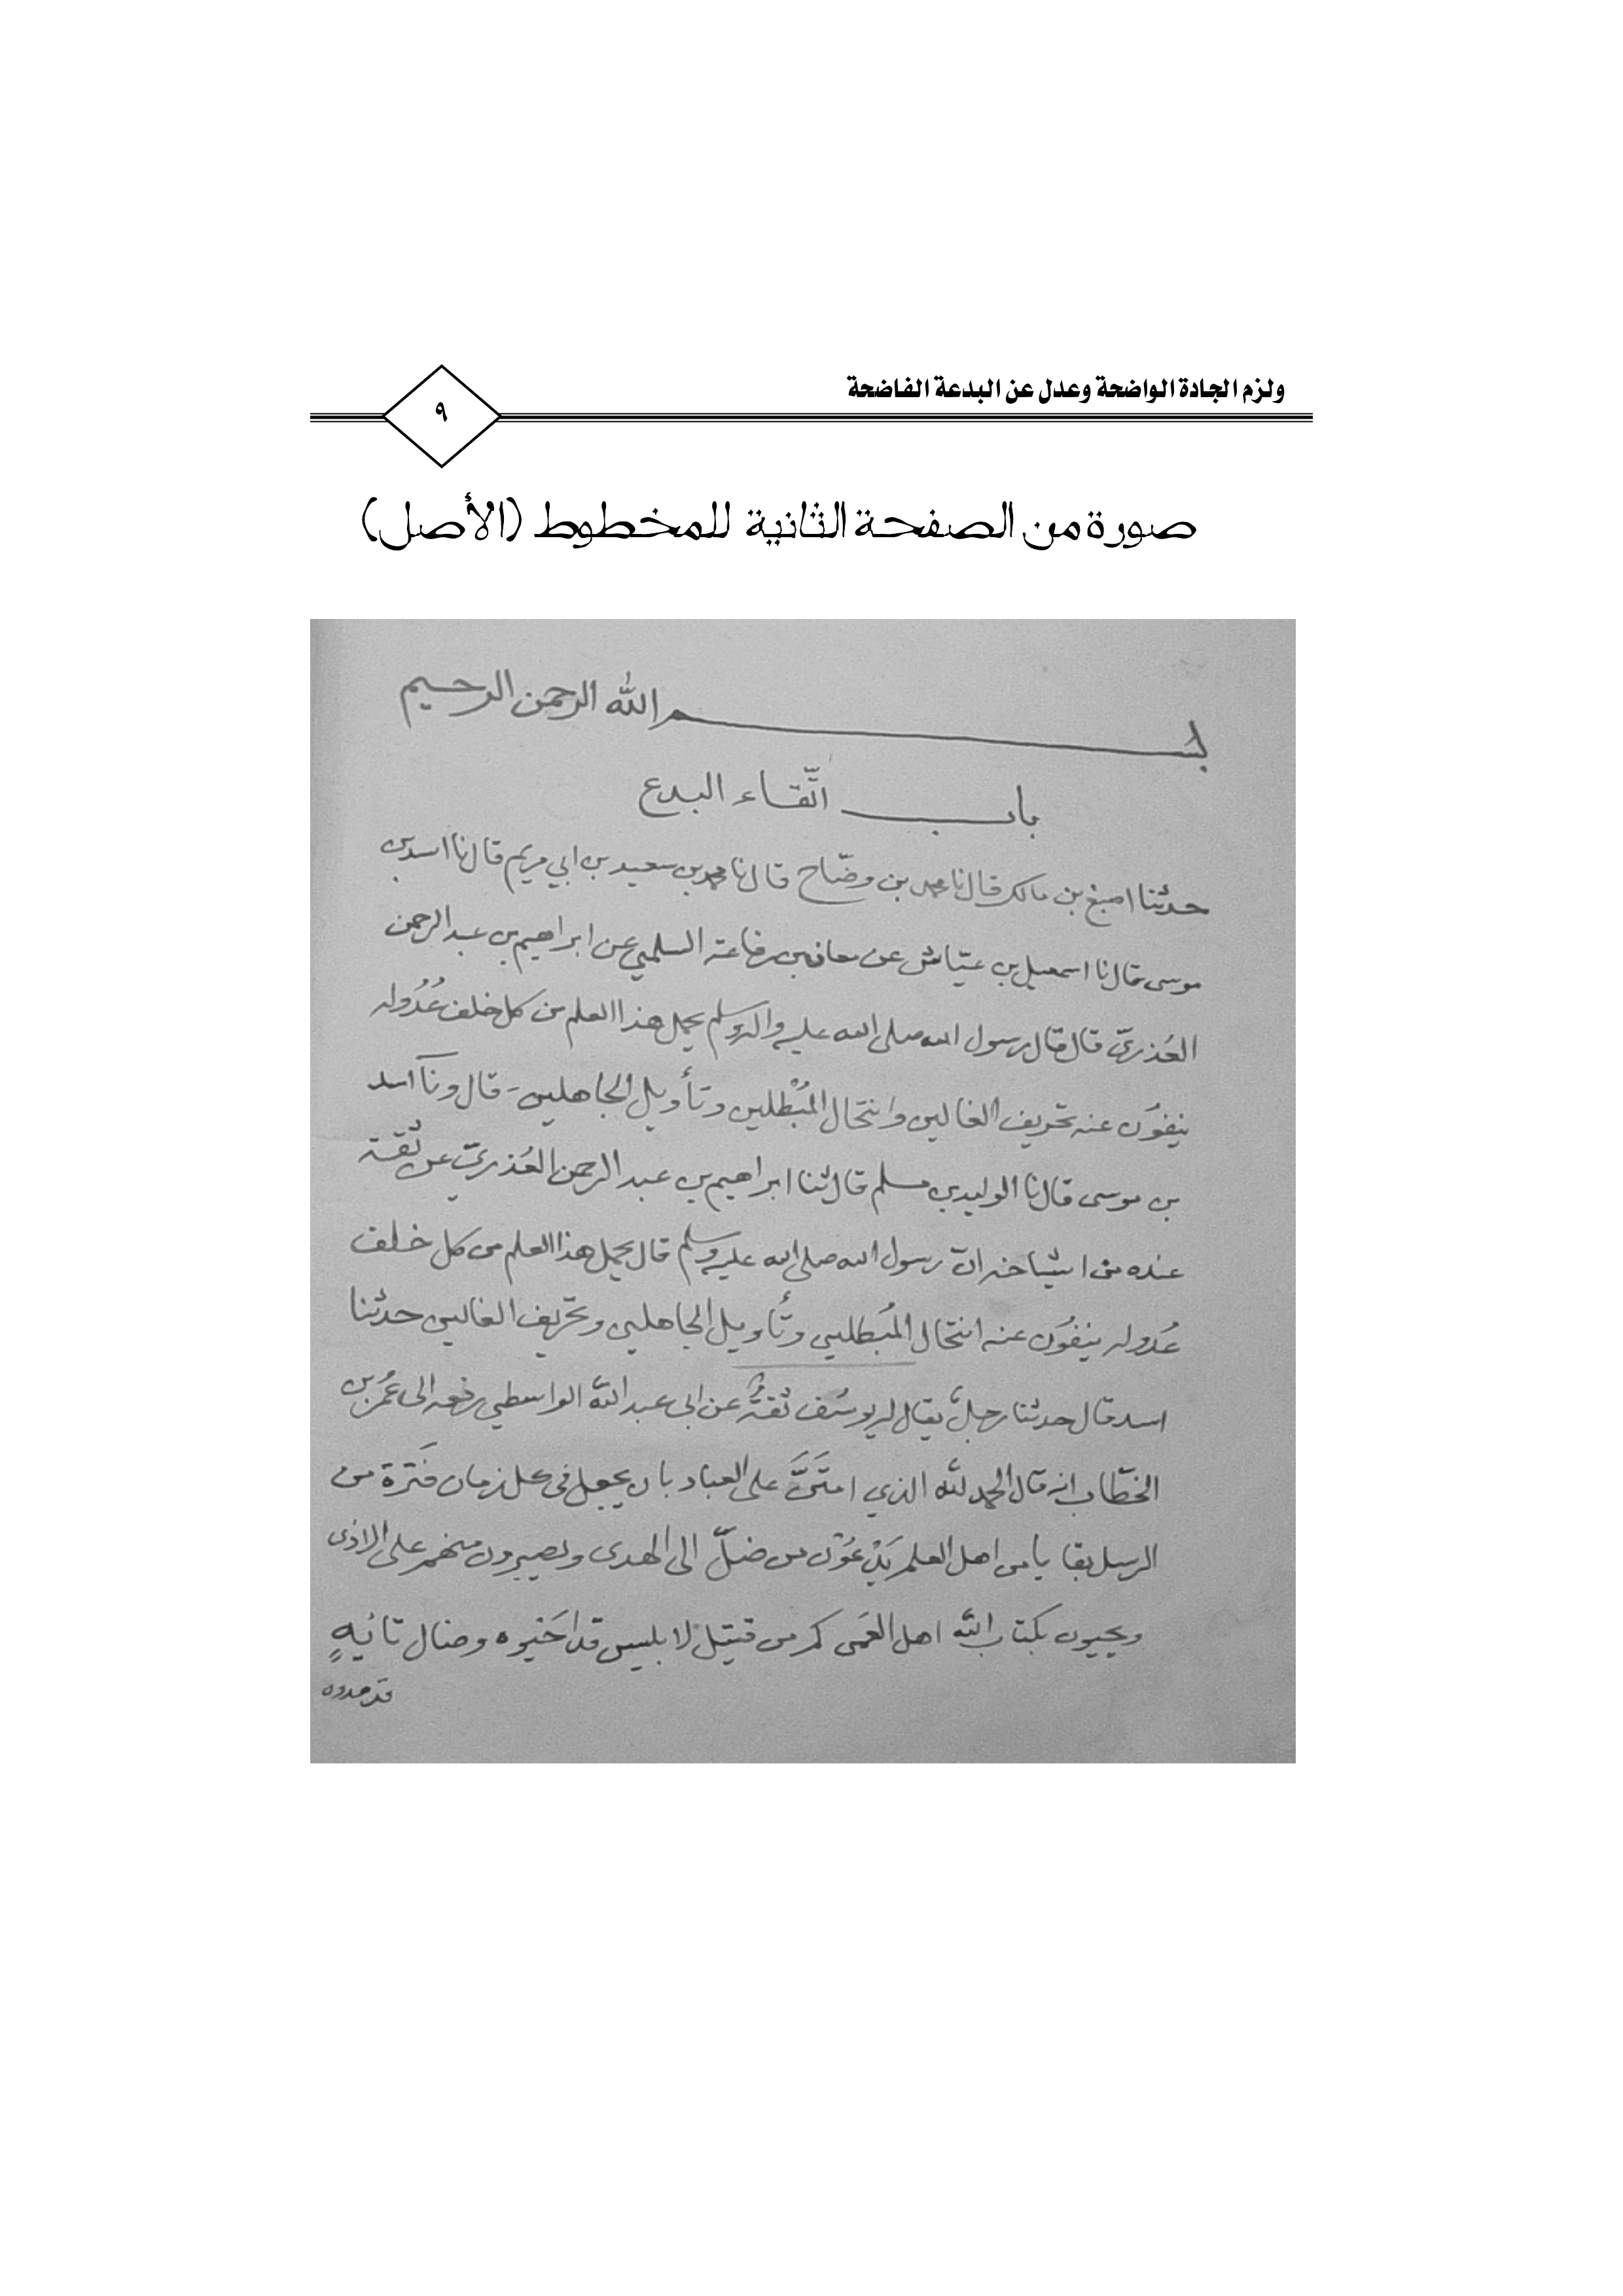 ولزم الجادة الواضحة وعدل عن البدعة الفاضحة
٩
صورة من الصفحة الثانية للمخطوط (الأصل)
بسم الله الرحمن الرحيم
باب اتّقاء البدع
حدثنا اصبغ بن مالك قال نا محمد بن وضّاح قال نا محمد بن سعيد بن ابي مريم قال نا اسد بن
موسى قال نا اسمعيل بن عيّاش عن معان بن رفاعة السلمي عن ابراهيم بن عبد الرحمن
العُذريّ قال قال رسول الله صلى الله عليه واله وسلم يحمل هذا العلم من كل خلف عُدُوله
ينفوُن عنه تحريف الغالين وانتحال المُبْطلين وتأويل الجاهلين - قال ونآ اسد
بن موسى قال نا الوليد بن مسلم قال ثنا ابراهيم بن عبد الرحمن العُذريّ عن ثقة
عنده من اشياخه انّ رسول الله صلى الله عليه وسلم قال يحمل هذا العلم من كل خلف
عُدوله ينفوُن عنه انتحال المُبطلين وتأويل الجاهلين وتحريف الغالين حدثنا
اسد قال حدثنا رجلٌ يقال له يوسُف ثقةٌ عن ابى عبد الله الواسطي رفعه الى عمُر بن
الخطّاب انه قال الحمد لله الذي امتَنَّ على العباد بان يجعل فى كل زمان فَترة من
الرسل بقايا من اهل العلم يَدْعُوْن من ضلّ الى الهدى ويصبرون منهم على الاذى
ويحيون بكتاب الله اهل العَمى كم من قتيل لابليس قد احَيوه وضال تائهٍ
قد هدوه